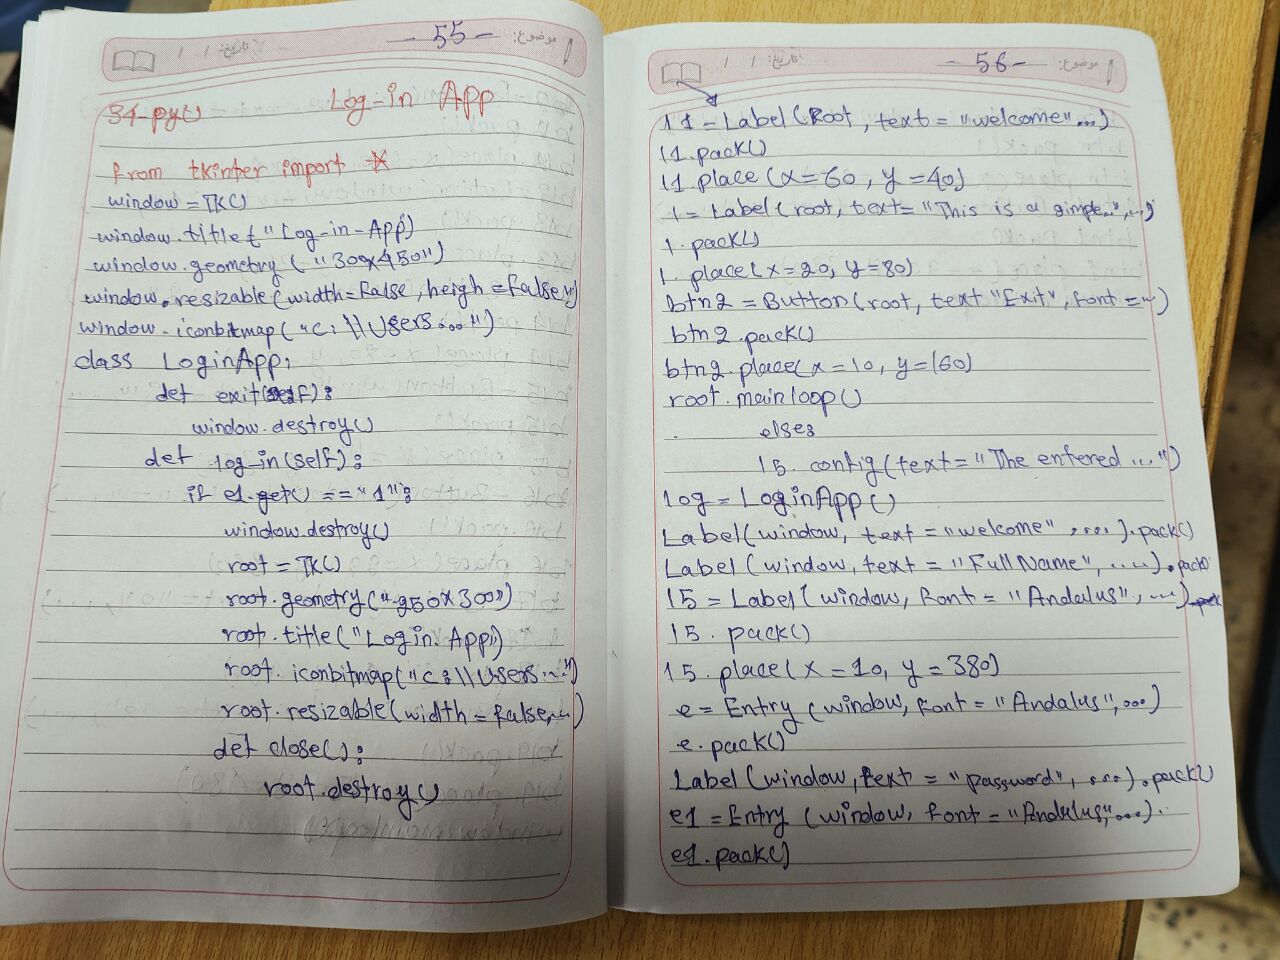 موضوع: -55- تاريخ: / /
34-py() Log-in App
from tkinter import *
window = TK()
window.title("Log-in-App)
window.geometry("300x450")
window.resizable(width=False, heigh=False)
window.iconbitmap("C:\\Users...")
class LoginApp:
def exit(self):
window.destroy()
def log-in(self):
if e1.get() == "1":
window.destroy()
root = TK()
root.geometry("250x300")
root.title("Login App")
root.iconbitmap("C:\\Users...")
root.resizable(width=False,...)
def close():
root.destroy()
موضوع: -56- تاريخ: / /
l1-Label(Root, text = "welcome"...)
l1.pack()
l1.place(x=60, y=40)
l= Label(root, text= "This is a simple..",...)
l.pack()
l.place(x=20, y=80)
btn2 = Button(root, text "Exit", font =...)
btn2.pack()
btn2.place(x=10, y=160)
root.mainloop()
else:
l5.config(text="The entered ...")
log = LoginApp()
Label(window, text = "welcome", ....).pack()
Label(window, text = "Full Name", ....).pack()
l5 = Label(window, font = "Andalus", ...)
l5.pack()
l5.place(x=10, y=380)
e = Entry(window, font = "Andalus",...)
e.pack()
Label(window, text = "password", ...).pack()
e1 = Entry(window, font = "Andalus",...).
e1.pack()